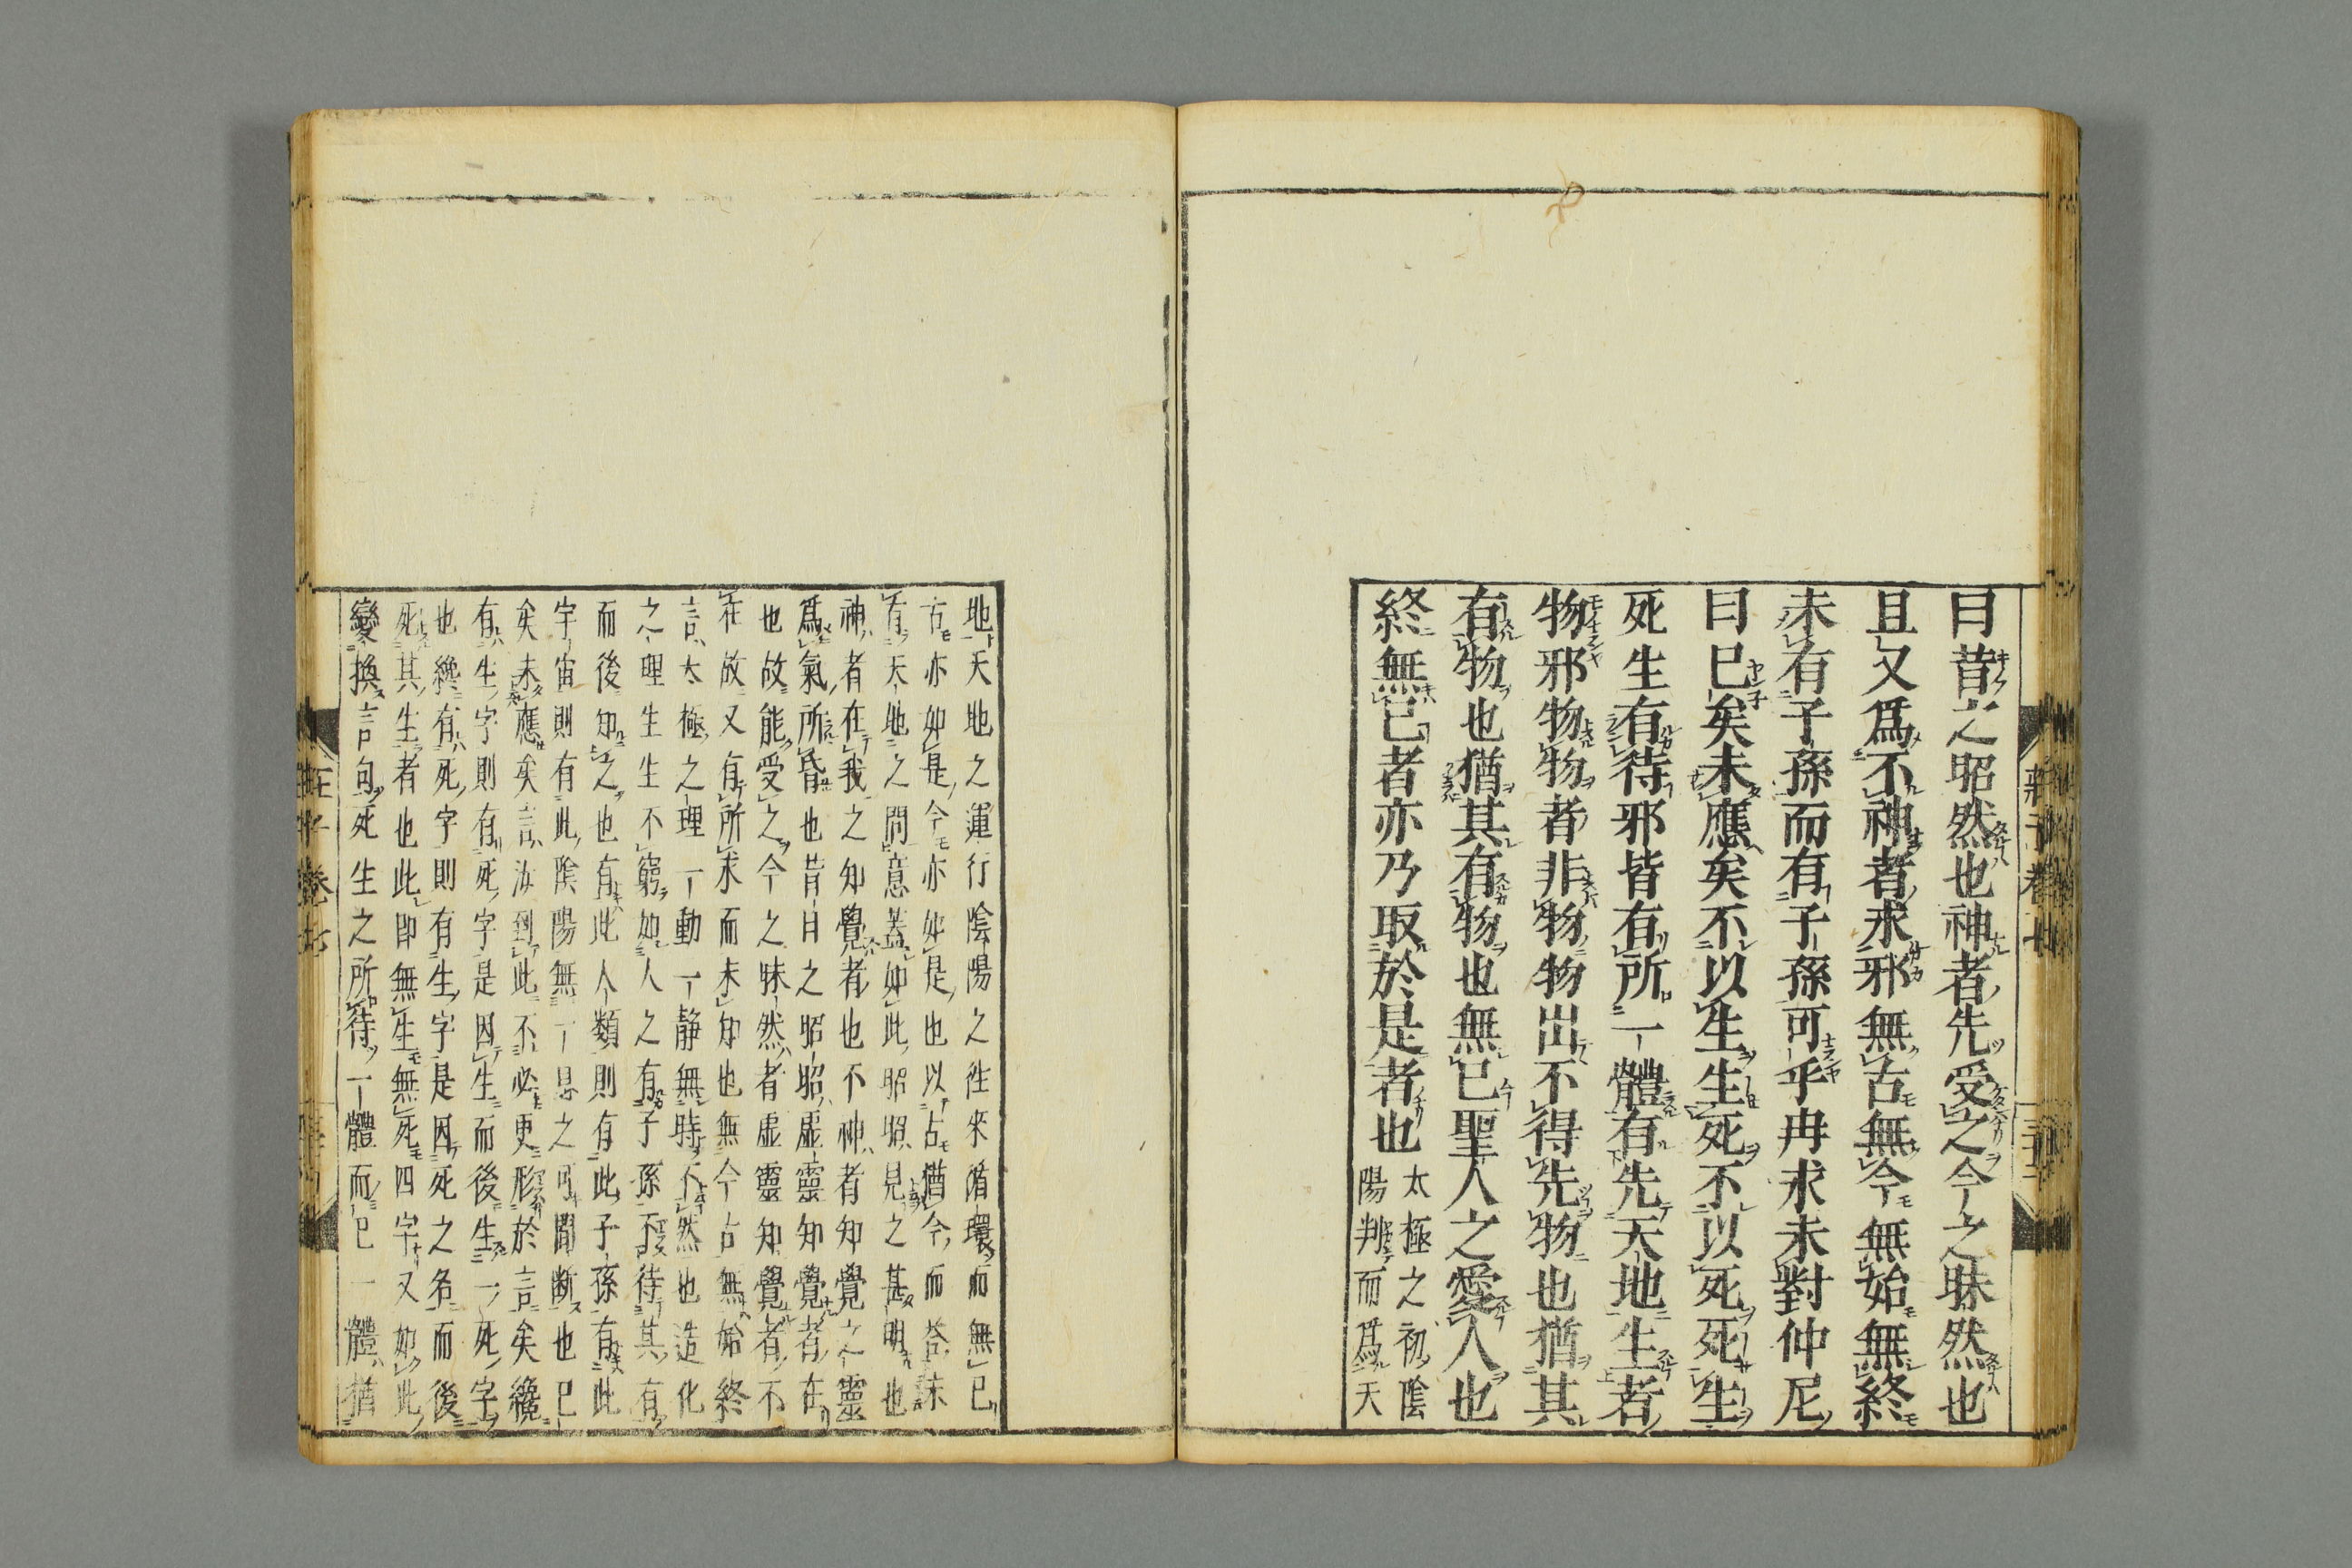 曰昔之昭然也神者先受之今之昧然也
且又爲不神者求邪無古無今無始無終
未有子孫而有子孫可乎冉求未對仲尼
曰已矣未應矣不以生生死不以死死生
死生有待邪皆有所一體有先天地生者
物邪物物者非物物出不得先物也猶其
有物也猶其有物也無已聖人之愛人也
終無已者亦乃取於是者也
太極之初陰
陽判而爲天
地天地之運行陰陽之往來循環而無已
古亦如是今亦如是也以古猶今而答冉
有天地之問意蓋如此昭昭見之甚明也
神者在我之知覺者也不神者知覺之靈
爲氣所昏也昔日之昭昭虛靈知覺者在
也故能受之今之昧然者虛靈知覺者不
在故又有所求而未知也無今古無始終
言太極之理一動一靜無時不然也造化
之理生生不窮如人之有子孫不待其有
而後知之也有此人類則有此子孫有此
宇宙則有此陰陽無一息之可間斷也已
矣未應矣言汝到此不必更形於言矣纔
有生字則有死字是因生而後生一死字
也纔有死字則有生字是因死之名而後
死其生者也此即無生無死四字又如此
變換言句死生之所待一體而已一體猶
莊子卷七